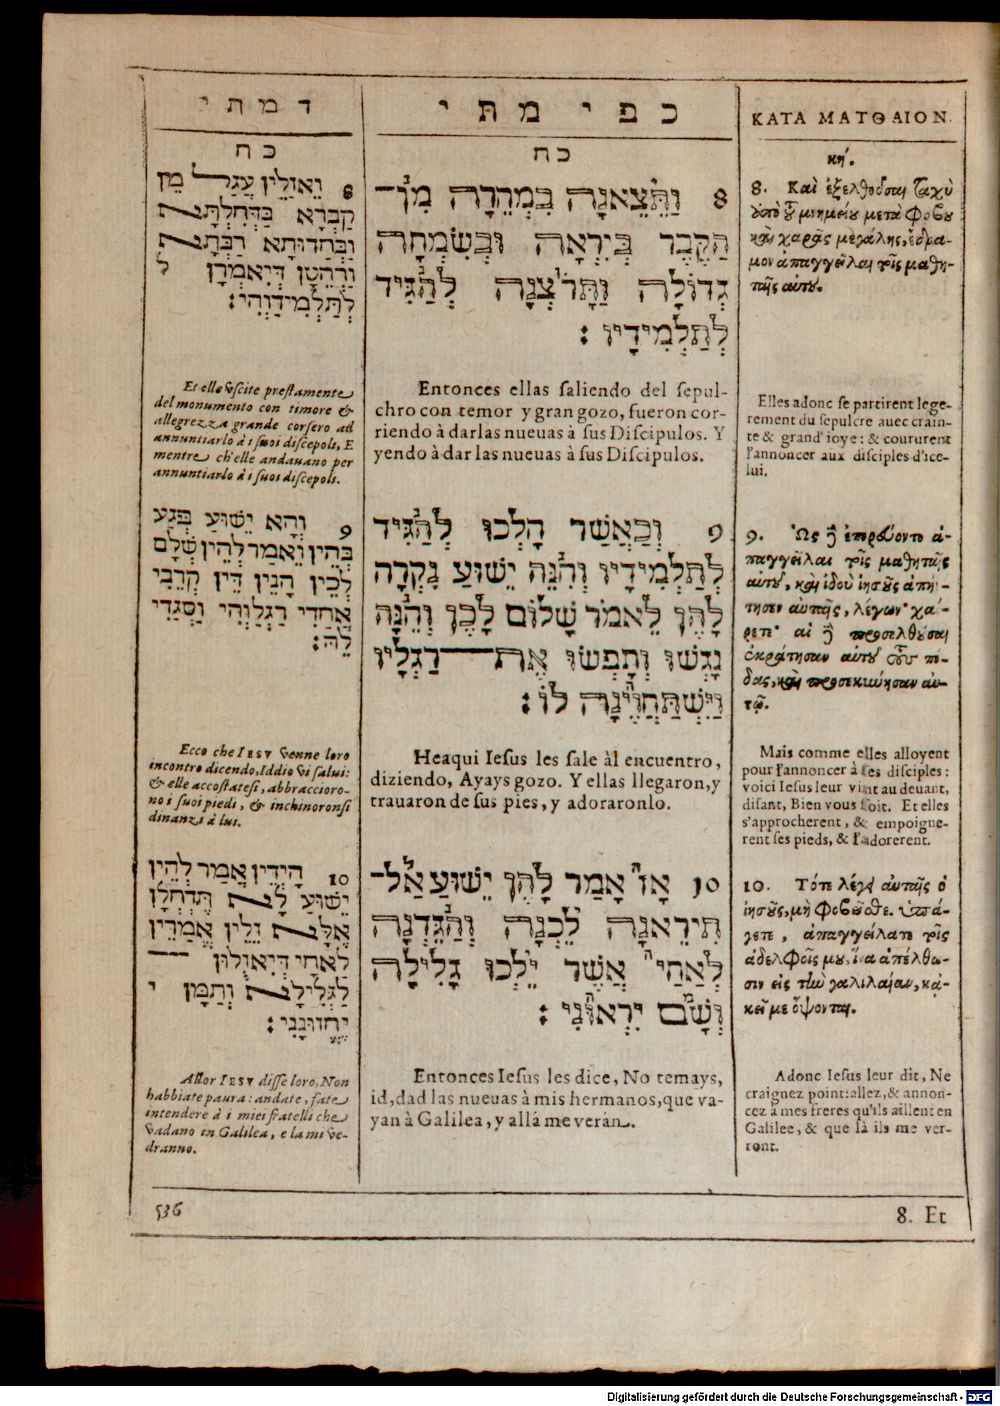 ד מ ת י
כ ח
8 וַאֲזַלֵין עֲגַל מֵן
קַבְרָא בְּדִחְלְתָּא
וּבְחַדוּתָא רַבְּתָא
וְרָהְטָן דְּיִאמְרָן ל
לְתַּלְמִידַוְהִי:
Et elle vscite prestamente
del monumento con timore &
allegrezza grande corsero ad
annuntiarlo à i suoi discepoli, E
mentre ch'elle andauano per
annuntiarlo à i suoi discepoli.
9 וְהָא יֵשׁוּעַ פְּגַע
בְּהֵין וֶאֲמַר לְהֵין שְׁלָם
לְכֵין הָנֵין דֵּין קְרֵבֵי
אֲחַדֵי רַגְלַוְהִי וַסְגַדֵי
לֵהּ:
Ecco che IESV venne loro
incontro dicendo, Iddio vi salui:
& elle accostatesi, abbracciaro-
no i suoi piedi, & inchinoronsi
dinanzi à lui.
10 הָיְדֵין אֲמַר לְהֵין
יֵשׁוּעַ לָא תִּדְחְלָן
אֶלָּא זֵלֵין אֱמַרֵין
לְאַחַי דְּיִאזְלוּן
לַגְלִילָא וְתַמָּן י
יֶחְזוּנָנִי:
Allor IESV disse loro, Non
habbiate paura: andate, fate
intendere à i miei fratelli che
vadano in Galilea, e la mi ve-
dranno.
כ פ י מ ת י
כח
8 וַתֵּצֵאנָה בִּמְהֵרָה מִן־
הַקֶּבֶר בְּיִרְאָה וּבְשִׂמְחָה
גְדוֹלָה וַתָּרֹצְנָה לְהַגִּיד
לְתַלְמִידָיו:
Entonces ellas saliendo del sepul-
chro con temor y gran gozo, fueron cor-
riendo à dar las nueuas à sus Discipulos. Y
yendo à dar las nueuas à sus Discipulos.
9 וְכַאֲשֶׁר הָלְכוּ לְהַגִּיד
לְתַלְמִידָיו וְהִנֵּה יֵשׁוּעַ נִקְרָה
לָהֶן לֵאמֹר שָׁלוֹם לָכֶן וְהֵנָּה
נָגְשׁוּ וְתָפְשׂוּ אֶת־רַגְלָיו
וַיִּשְׁתַּחֲוֶינָה לוֹ:
Heaqui Iesus les sale àl encuentro,
diziendo, Ayays gozo. Y ellas llegaron, y
trauaron de sus pies, y adoraronlo.
10 אָז אָמַר לָהֶן יֵשׁוּעַ אַל־
תִּירֶאנָה לֵכְנָה וְהַגֵּדְנָה
לְאַחַי אֲשֶׁר יֵלְכוּ גָלִילָה
וְשָׁם יִרְאוּנִי:
Entonces Iesus les dice, No temays,
id, dad las nueuas à mis hermanos, que va-
yan à Galilea, y allá me verán.
ΚΑΤΑ ΜΑΤΘΑΙΟΝ.
κή.
8. Καὶ ἐξελθοῦσαι ταχὺ
ἀπὸ τοῦ μνημείου μετὰ φόβου
καὶ χαρᾶς μεγάλης, ἔδρα-
μον ἀπαγγεῖλαι τοῖς μαθη-
ταῖς αὐτοῦ.
Elles adonc se partirent lege-
rement du sepulcre auec crain-
te & grand' ioye: & coururent
l'annoncer aux disciples d'ice-
lui.
9. Ὡς δὲ ἐπορεύοντο ἀ-
παγγεῖλαι τοῖς μαθηταῖς
αὐτοῦ, καὶ ἰδοὺ ἰησοῦς ἀπήν-
τησεν αὐταῖς, λέγων· χαί-
ρετε· αἱ δὲ προσελθοῦσαι
ἐκράτησαν αὐτοῦ τοὺς πό-
δας, καὶ προσεκύνησαν αὐ-
τῷ.
Mais comme elles alloyent
pour l'annoncer à ses disciples:
voici Iesus leur vint au deuant,
disant, Bien vous soit. Et elles
s'approcherent, & empoigne-
rent ses pieds, & l'adorerent.
10. Τότε λέγει αὐταῖς ὁ
ἰησοῦς, μὴ φοβεῖσθε. ὑπά-
γετε, ἀπαγγείλατε τοῖς
ἀδελφοῖς μου, ἵνα ἀπέλθω-
σιν εἰς τὴν γαλιλαίαν, κᾀ-
κεῖ με ὄψονται.
Adonc Iesus leur dit, Ne
craignez point: allez, & annon-
cez à mes freres qu'ils aillent en
Galilee, & que là ils me ver-
ront.
536
8. Et
Digitalisierung gefördert durch die Deutsche Forschungsgemeinschaft - DFG